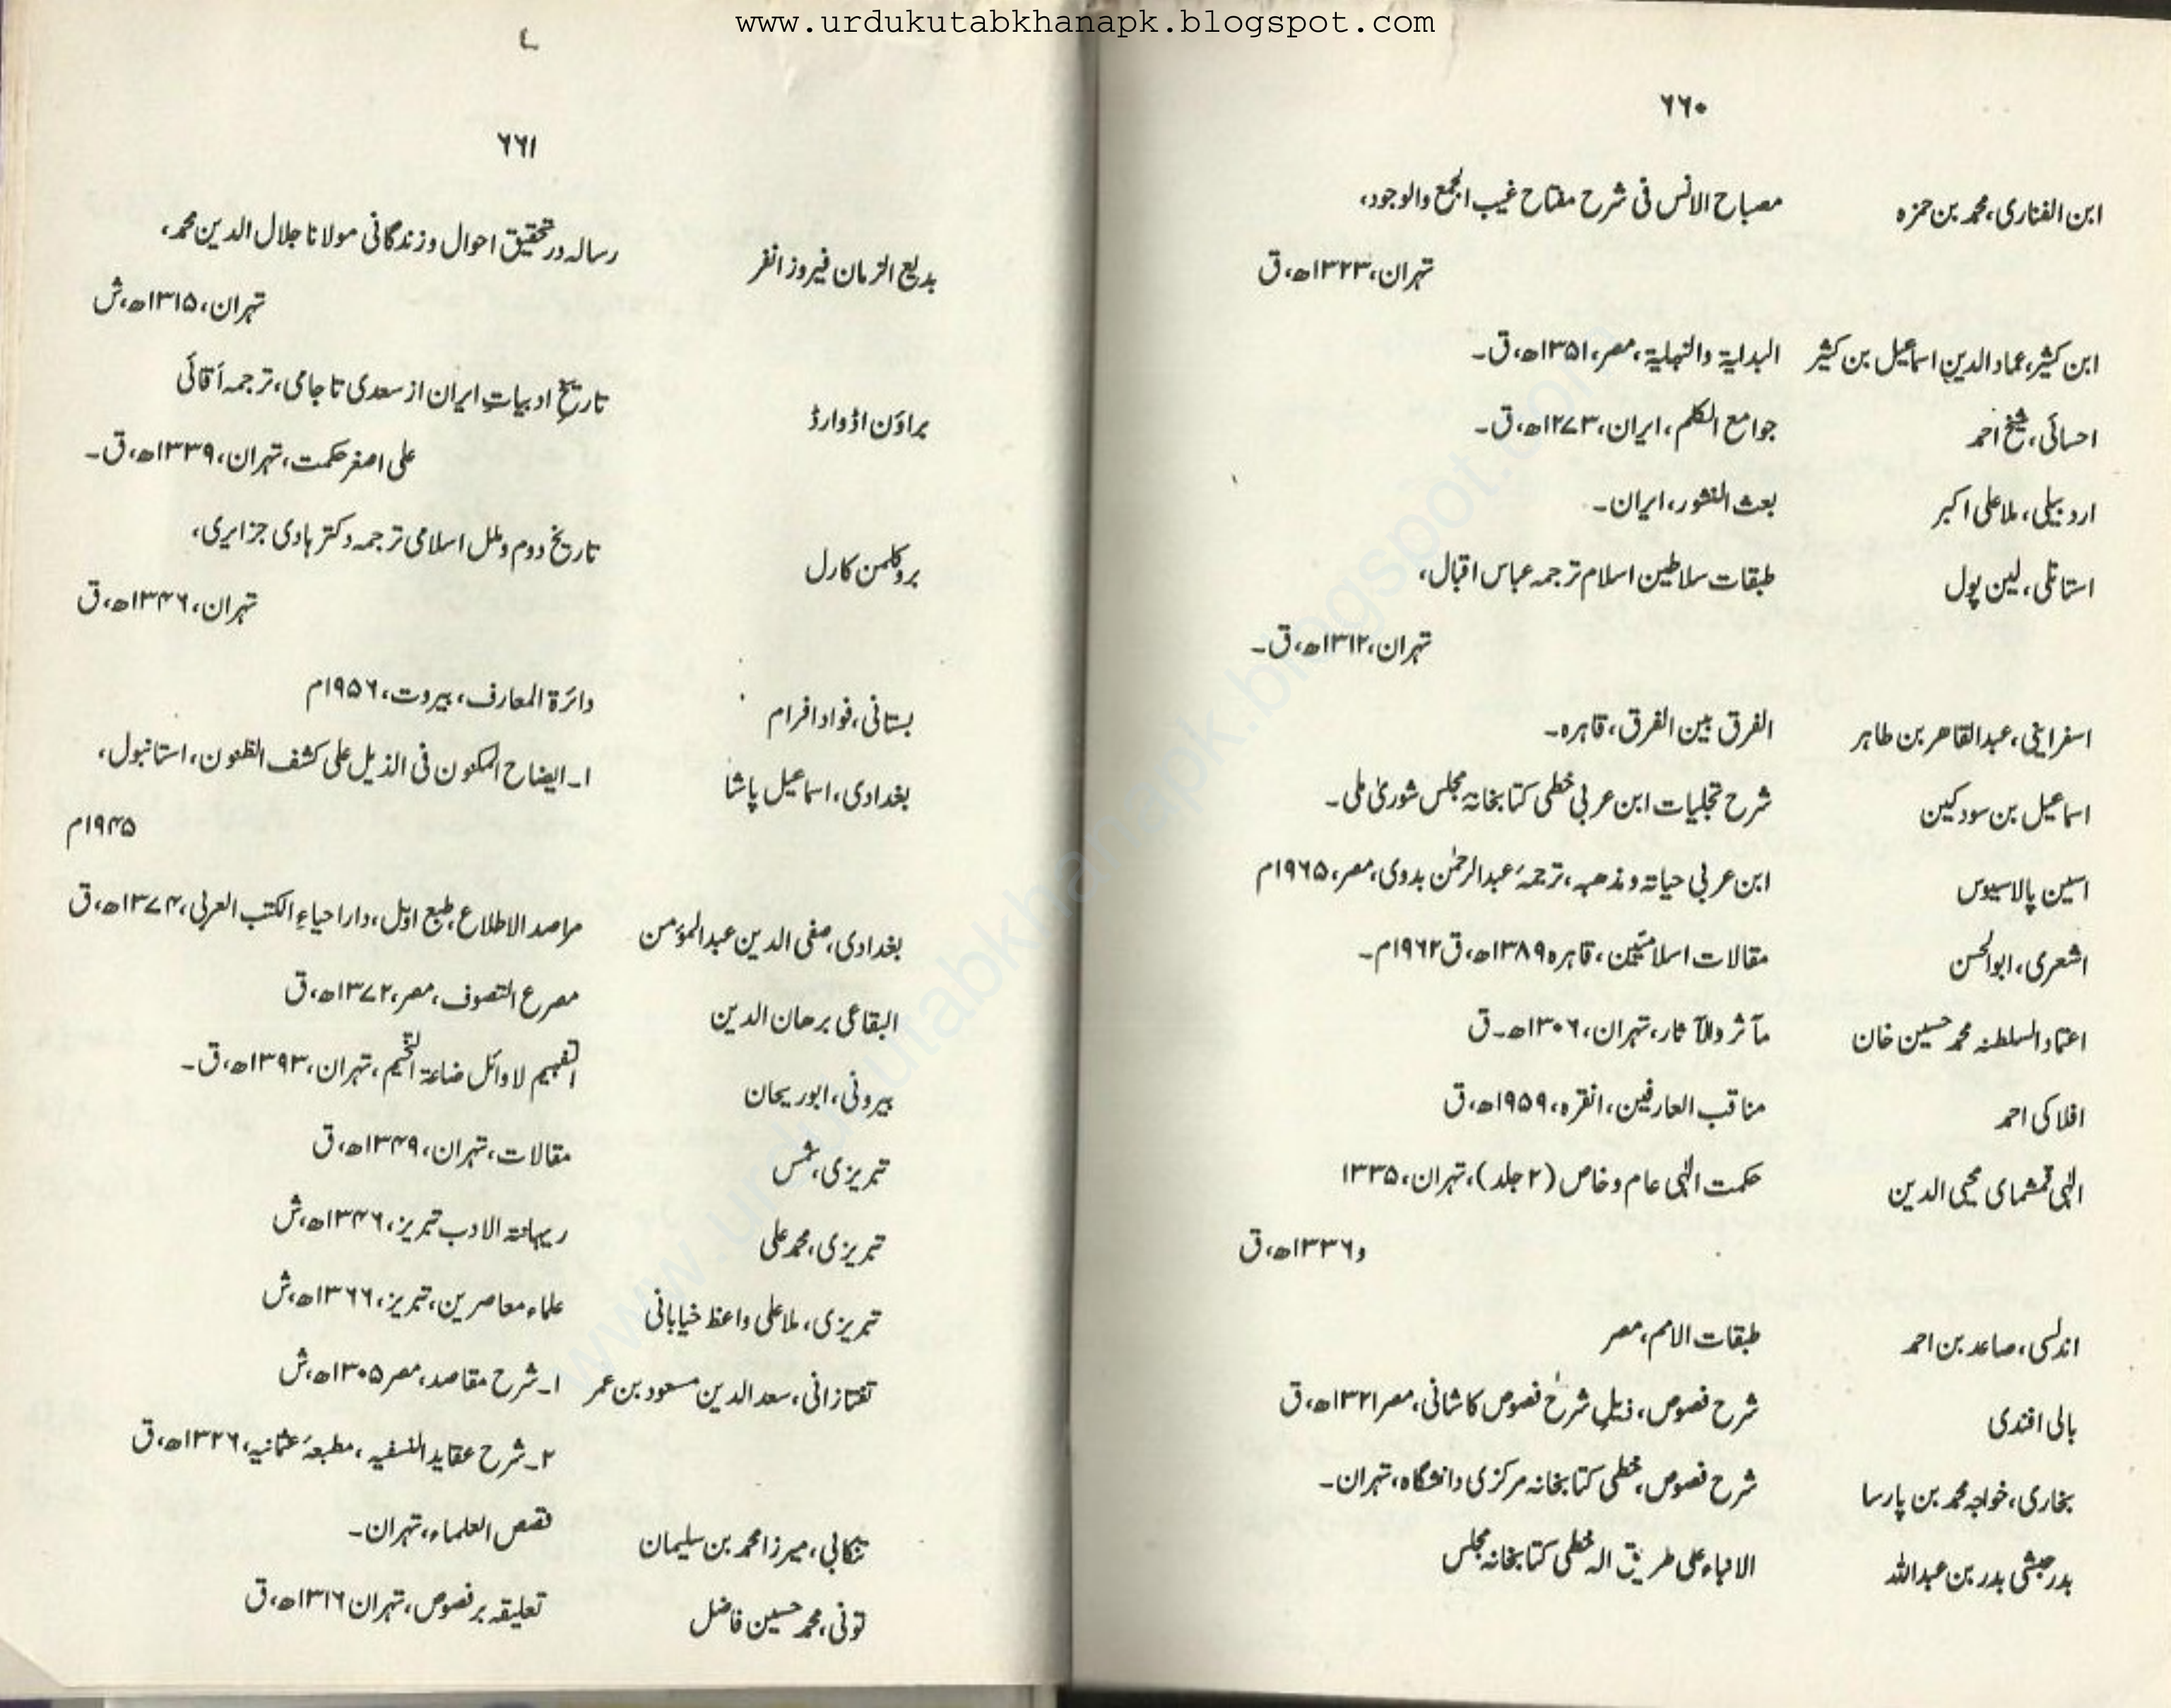 www.urdukutabkhanapk.blogspot.com
۶۶۰
ابن الفناری، محمد بن حمزہ مصباح الانس فی شرح مفتاح غیب الجمع والوجود،
تہران، ۱۳۲۳ھ، ق
ابن کثیر، عماد الدین اسماعیل بن کثیر البدایۃ والنہایۃ، مصر، ۱۳۵۱ھ، ق۔
احسائی، شیخ احمد جوامع الکلم، ایران، ۱۲۷۳ھ، ق۔
اردبیلی، ملا علی اکبر بعث النشور، ایران۔
استانلی، لین پول طبقات سلاطین اسلام ترجمہ عباس اقبال،
تہران، ۱۳۱۲ھ، ق۔
اسفراینی، عبدالقاھر بن طاہر الفرق بین الفرق، قاہرہ۔
اسماعیل بن سودکین شرح تجلیات ابن عربی خطی کتابخانۂ مجلس شوریٰ ملی۔
اسین پالاسیوس ابن عربی حیاتہ و مذھبہ، ترجمۂ عبدالرحمٰن بدوی، مصر، ۱۹۶۵م
اشعری، ابوالحسن مقالات اسلامیین، قاہرہ ۱۳۸۹ھ، ق ۱۹۶۲م۔
اعتماد السلطنہ محمد حسین خان مآثر والآثار، تہران، ۱۳۰۶ھ۔ ق
افلاکی احمد مناقب العارفین، انقرہ، ۱۹۵۹ھ، ق
الٰہی قمشہای محیی الدین حکمت الٰہی عام و خاص (۲ جلد)، تہران، ۱۳۳۵
و ۱۳۳۶ھ، ق
اندلسی، صاعد بن احمد طبقات الامم، مصر
بالی افندی شرح فصوص، ذیلِ شرح فصوص کاشانی، مصر ۱۳۲۱ھ، ق
بخاری، خواجہ محمد بن پارسا شرح فصوص، خطی کتابخانہ مرکزی دانشگاہ، تہران۔
بدر حبشی بدر بن عبداللہ الانباء علی طریق الہ خطی کتابخانہ مجلس
۶۶۱
بدیع الزمان فیروز انفر رسالہ در تحقیق احوال و زندگانی مولانا جلال الدین محمد،
تہران، ۱۳۱۵ھ، ش
براؤن اڈوارڈ تاریخِ ادبیاتِ ایران از سعدی تا جامی، ترجمہ آقائی
علی اصغر حکمت، تہران، ۱۳۳۹ھ، ق۔
بروکلمن کارل تاریخ دوم و ملل اسلامی ترجمہ دکتر ہادی جزایری،
تہران، ۱۳۴۶ھ، ق
بستانی، فواد افرام دائرۃ المعارف، بیروت، ۱۹۵۶م
بغدادی، اسماعیل پاشا ۱۔ ایضاح المکنون فی الذیل علی کشف الظنون، استانبول،
۱۹۴۵م
بغدادی، صفی الدین عبدالمؤمن مراصد الاطلاع، طبع اوّل، دار احیاءِ الکتب العربی، ۱۳۷۴ھ، ق
البقاعی برھان الدین مصرع التصوف، مصر، ۱۳۷۲ھ، ق
بیرونی، ابوریحان التفہیم لاوائل ضاعۃ التنجیم، تہران، ۱۳۹۳ھ، ق۔
تبریزی، شمس مقالات، تہران، ۱۳۴۹ھ، ق
تبریزی، محمد علی ریہانتہ الادب تبریز، ۱۳۴۶ھ، ش
تبریزی، ملا علی واعظ خیابانی علماء معاصرین، تبریز، ۱۳۶۶ھ، ش
تفتازانی، سعد الدین مسعود بن عمر ۱۔ شرح مقاصد، مصر ۱۳۰۵ھ، ش
۲۔ شرح عقاید النسفیہ، مطبعۂ عثمانیہ، ۱۳۲۶ھ، ق
تنکابی، میرزا محمد بن سلیمان قصص العلماء، تہران۔
تونی، محمد حسین فاضل تعلیقہ بر فصوص، تہران ۱۳۱۶ھ، ق